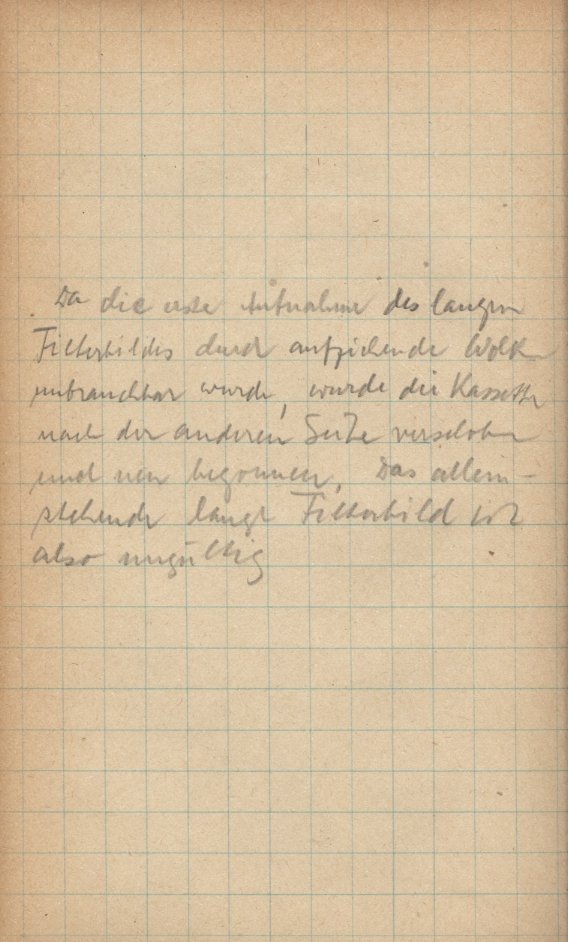 Da die erste Aufnahme des langen
Filterbildes durch aufziehende Wolken
unbrauchbar wurde, wurde die Kassette
nach der anderen Seite verschoben
und neu begonnen. Das allein-
stehende lange Filterbild ist
also ungültig